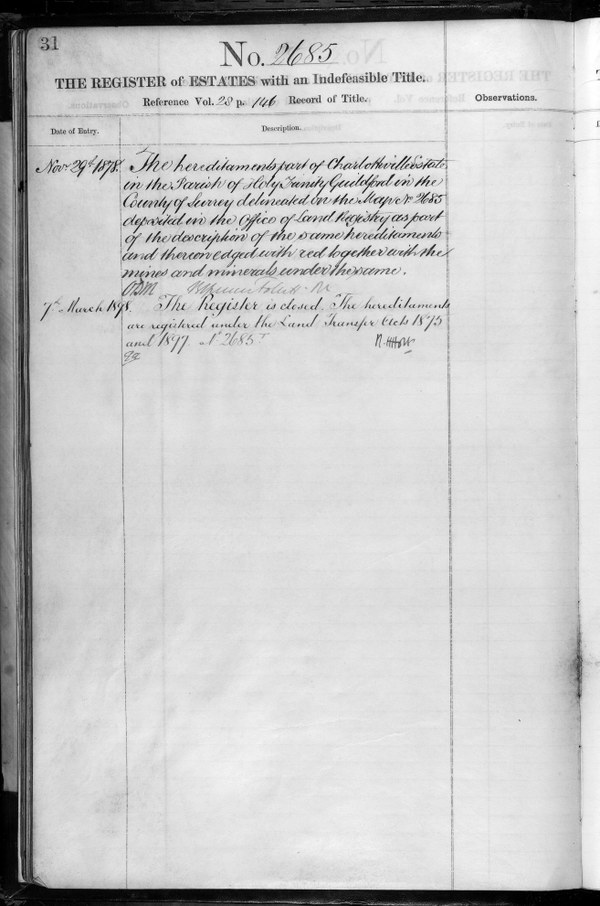 31
No. 2685
THE REGISTER of ESTATES with an Indefeasible Title.
Reference Vol. 23 p. 146 Record of Title.
Observations.
Date of Entry.
Description.
Novr 29th 1878.
The hereditaments part of Charlottville Estate
in the Parish of Holy Trinity Guildford in the
County of Surrey delineated on the Map No 2685
deposited in the Office of Land Registry as part
of the description of the same hereditaments
and thereon edged with red together with the
mines and minerals under the same.
7th March 1898.
The Register is closed. The hereditaments
are registered under the Land Transfer Acts 1875
and 1897 No 2685